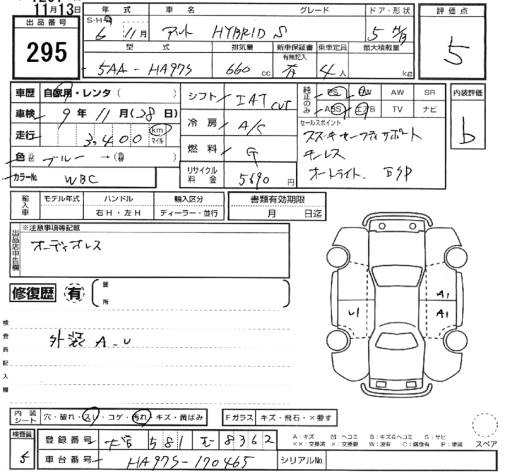 11月13日
出品番号
295
年式 車名 グレード ドア・形状
S・H・R
6 11月 アルト HYBRID S 5
評価点
5
型式 排気量 新車保証書 乗車定員 最大積載量
有無記入
5AA-HA97S 660 cc 有 4人 kg
車歴 自家用・レンタ( )
シフト IAT
純正のみ PS PW AW SR
ABS エアB TV ナビ
内装評価
b
車検 9年11月(28日)
冷房 A/C
セールスポイント
走行 3,400 km マイル
燃料 G
スズキセーフティサポート
キーレス
オートライト ESP
色 ブルー→( )
カラーNo. WBC
リサイクル料金 5690円
輸入車 モデル年式 ハンドル 輸入区分
年 右H・左H ディーラー・並行
書類有効期限
月 日迄
出品店申告欄
※注意事項等記載
オーディオレス
修復歴 有 箇所
検査員記入欄
外装 A-U
U1 A1
A1
内装シート 穴・破れ・スレ・コゲ・汚れ・キズ・黄ばみ
Fガラス キズ・飛石・×要す
検査員
登録番号 581 8362
A:キズ U:ヘコミ B:キズ&ヘコミ S:サビ
××:交換済 ×:要交換 W:波有 C:腐食有 P:塗装
スペア
車台番号 HA97S-170465 シリアルNo.